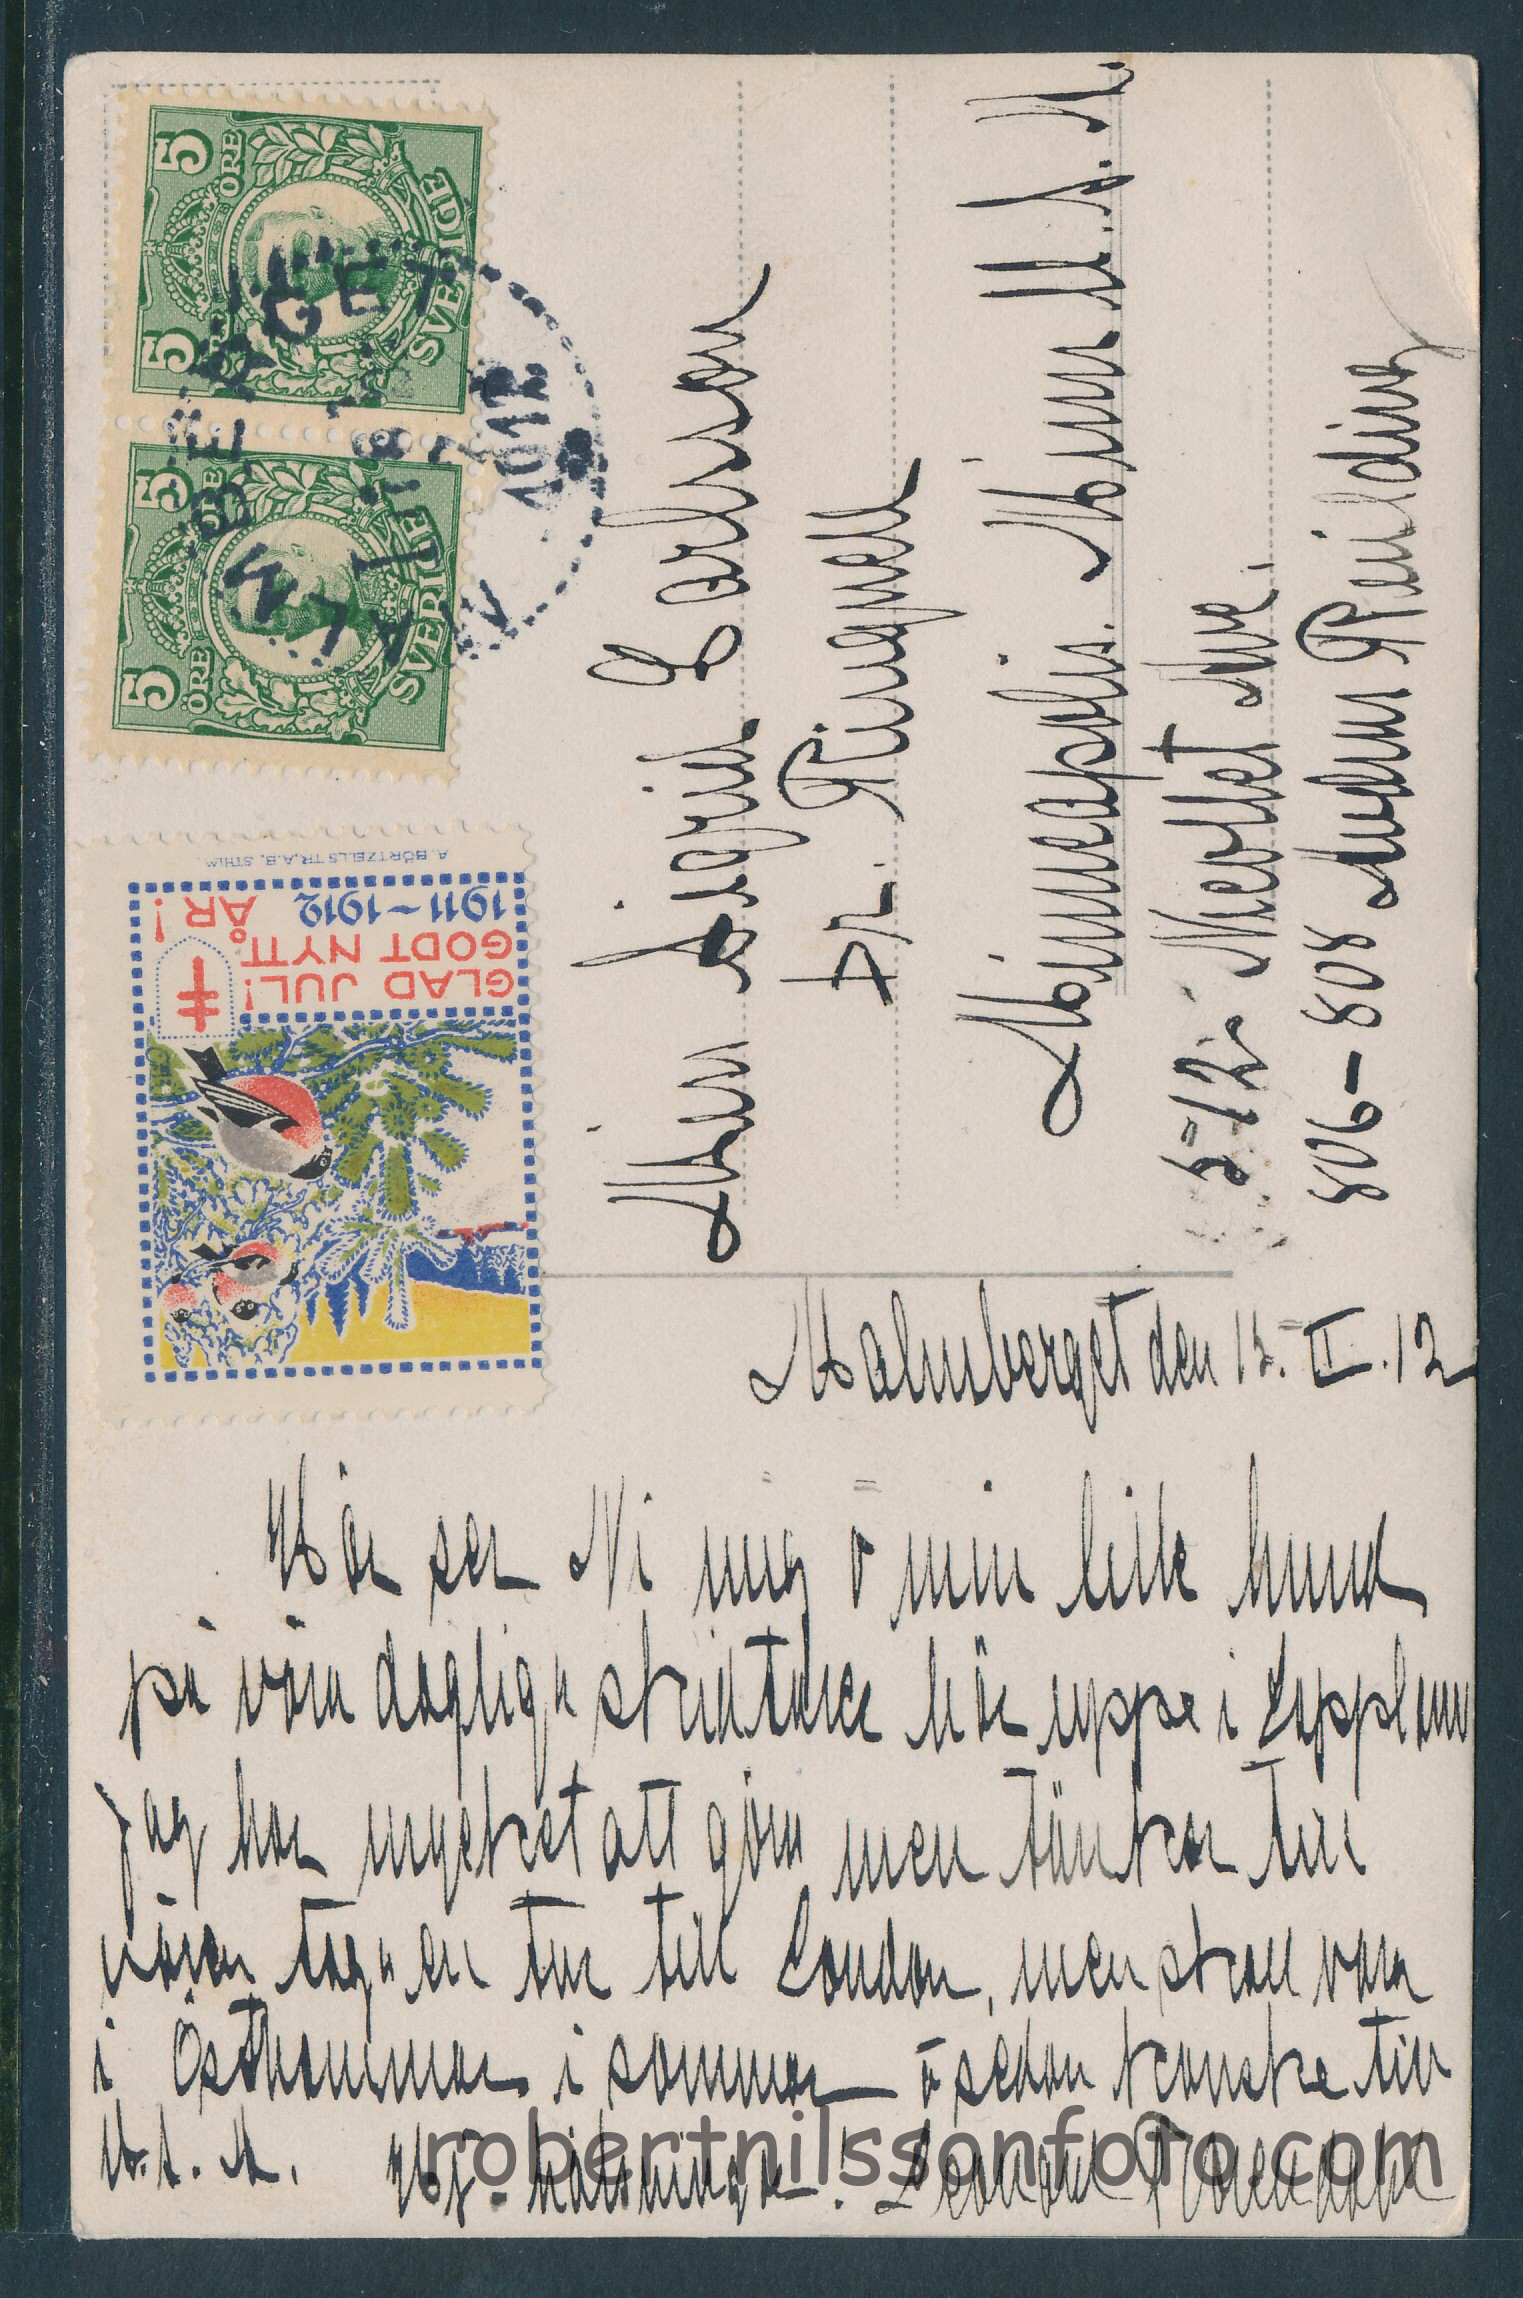 5 5
ÖRE ÖRE
SVERIGE
5 5
ÖRE ÖRE
SVERIGE
MALMBERGET
1912
A. BÖRTZELLS TR.A.B. STHLM.
1911–1912
GLAD JUL!
GODT NYTT
ÅR!
Miss Sigrid Carlson
Minneapolis. Minn U.S.A.
512 Nicollet Ave.
806–808 Building
Malmberget den 13. II. 12
Här ser Ni mig o min lille hund
på våra dagliga här uppe i Lappland
Jag har mycket att göra men tänker till
våren taga en tur till London, men skall vara
i Östhammar i sommar o sedan kanske till
U.S.A. Hj. hälsningar!
robertnilssonfoto.com